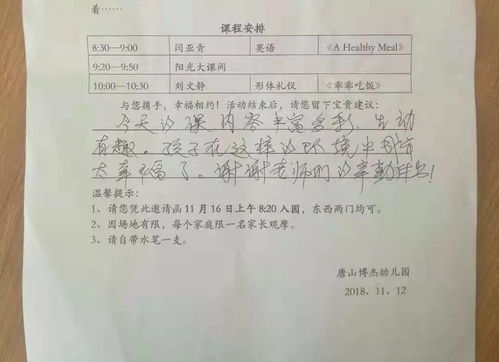 着……
课程安排
8:30—9:00 闫亚青 英语 《A Healthy Meal》
9:20—9:50 阳光大课间
10:00—10:30 刘文静 形体礼仪 《乖乖吃饭》
与您携手，幸福相约！活动结束后，请您留下宝贵建议：
今天的课内容丰富多彩，生动
有趣。孩子在这样的环境中成长
太幸福了。谢谢老师们的辛勤付出！
温馨提示：
1、请您凭此邀请函 11 月 16 日上午 8:20 入园，东西两门均可。
2、因场地有限，每个家庭限一名家长观摩。
3、请自带水笔一支。
唐山博杰幼儿园
2018、11、12